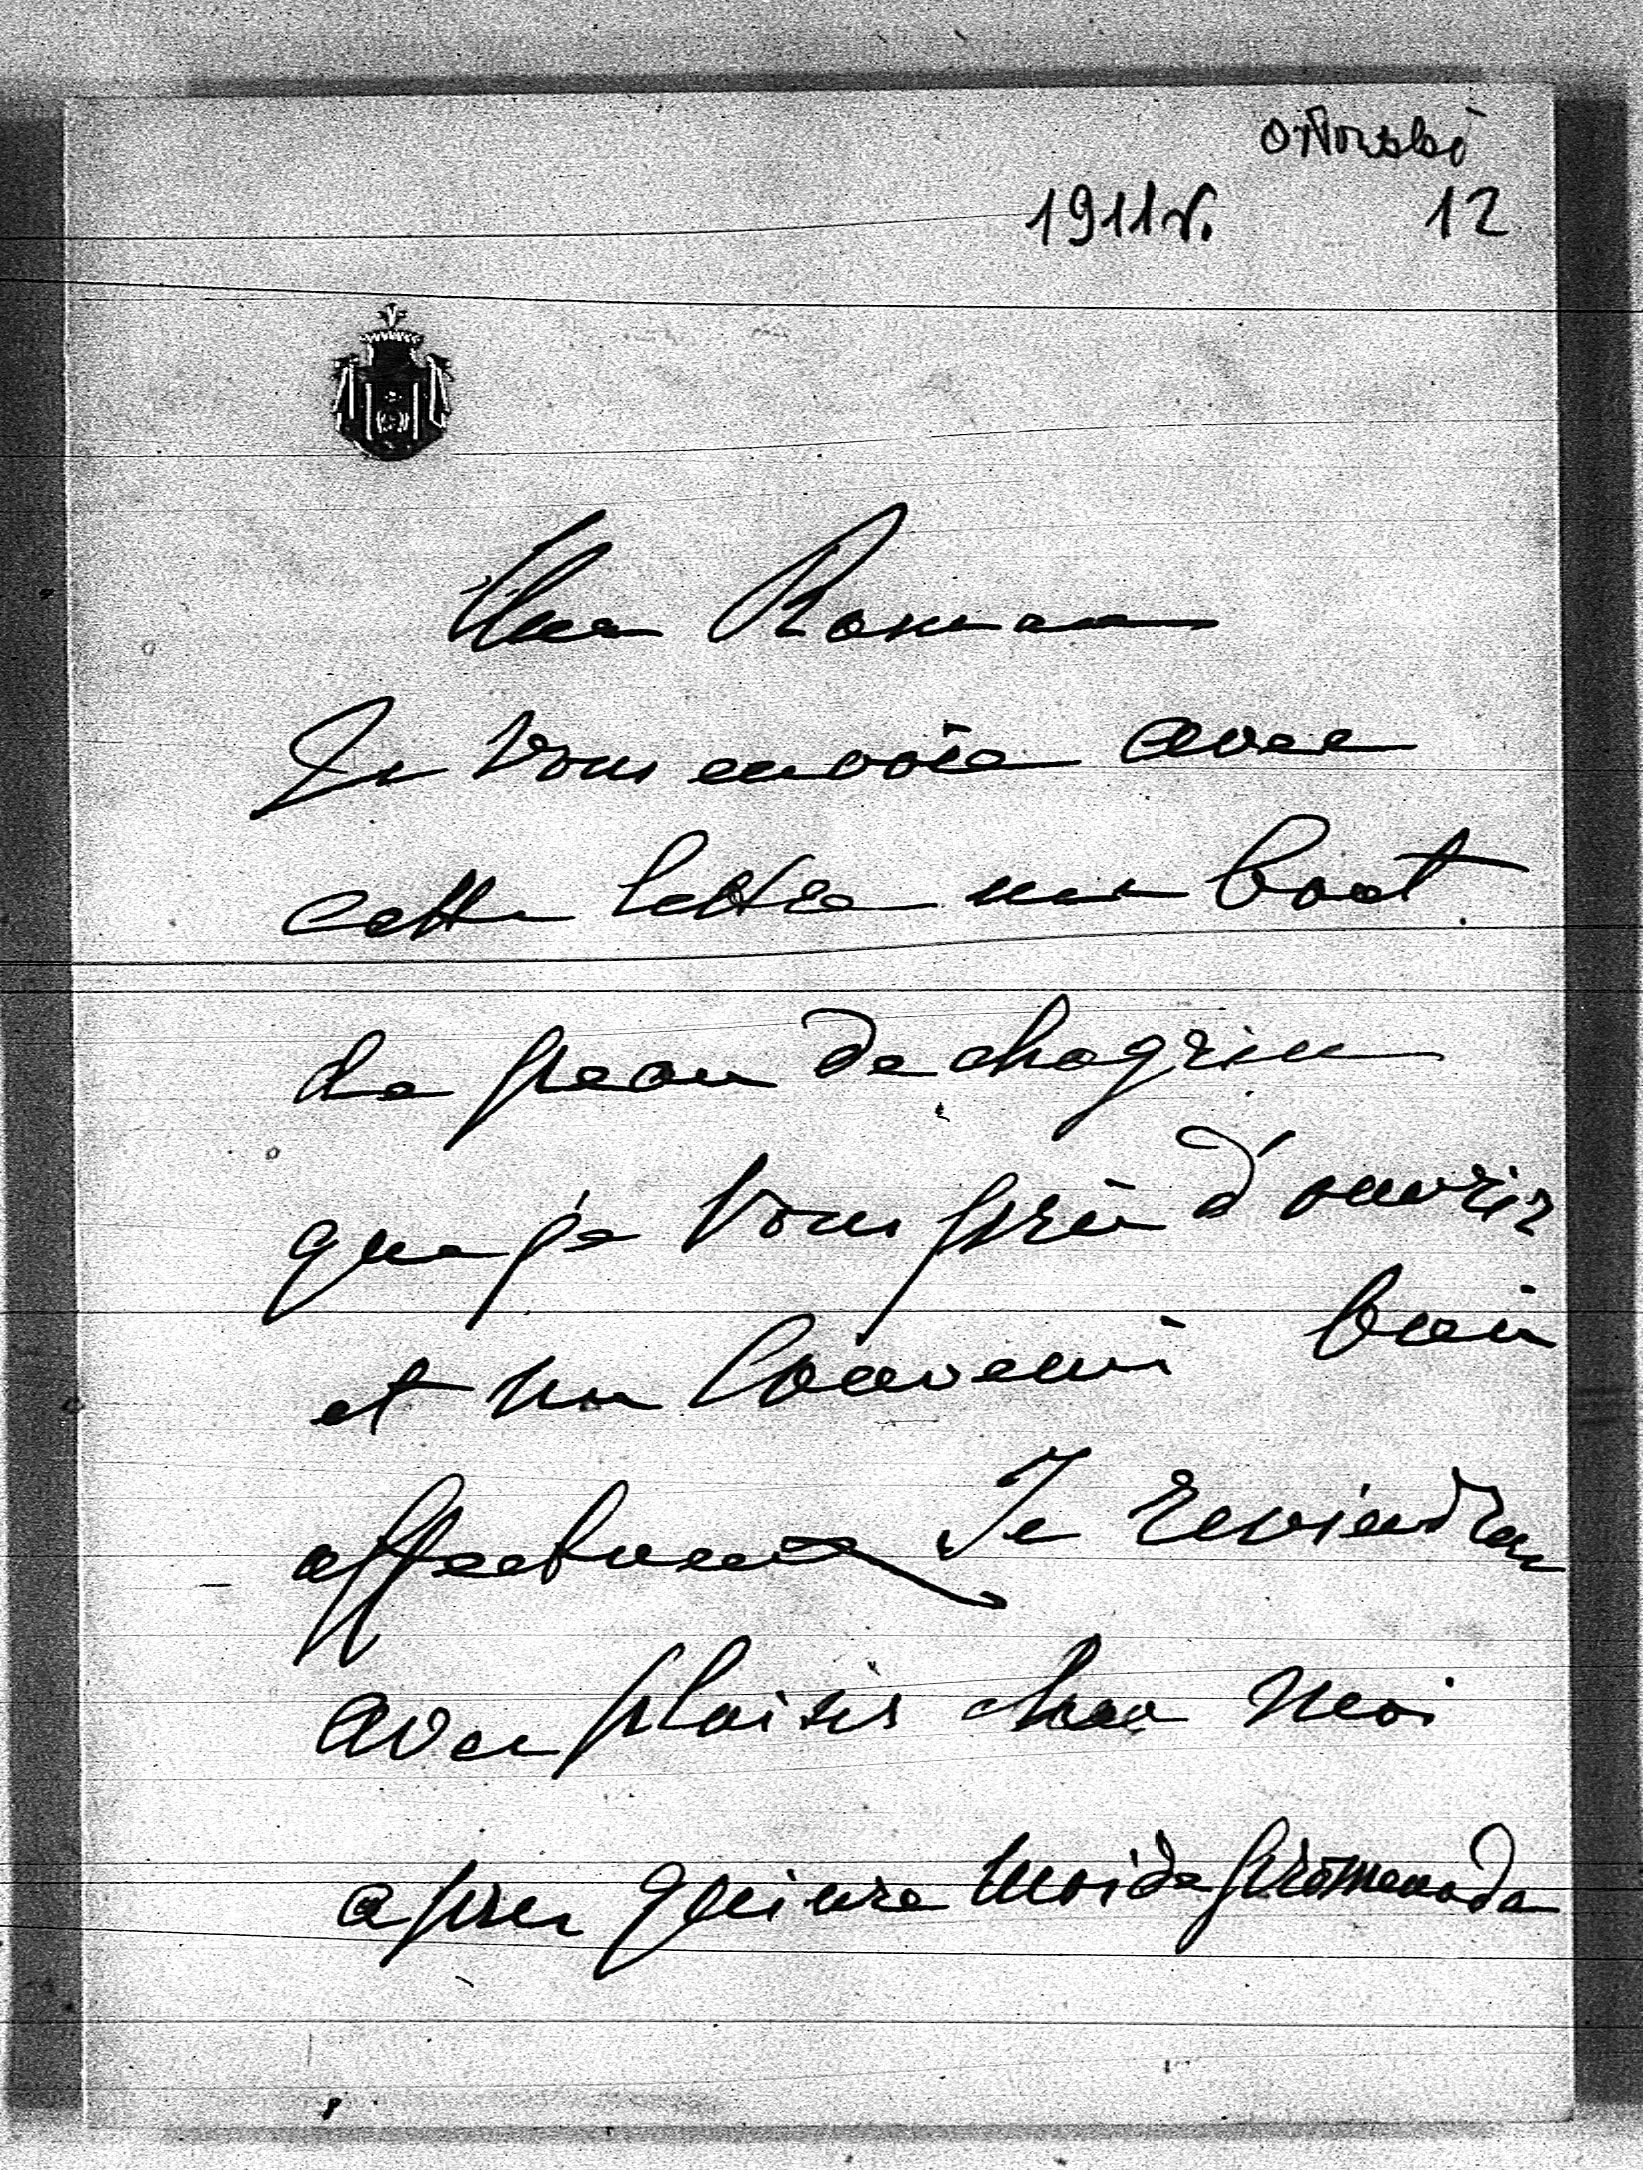 Orłowski
1911 r. 12
Cher Roman
Je vous envoie avec
cette lettre un bout
de peau de chagrin
que je vous prie d'ouvrir
et un souvenir bien
affectueux Je reviendrai
avec plaisir chez moi
apres quinze mois de promenade